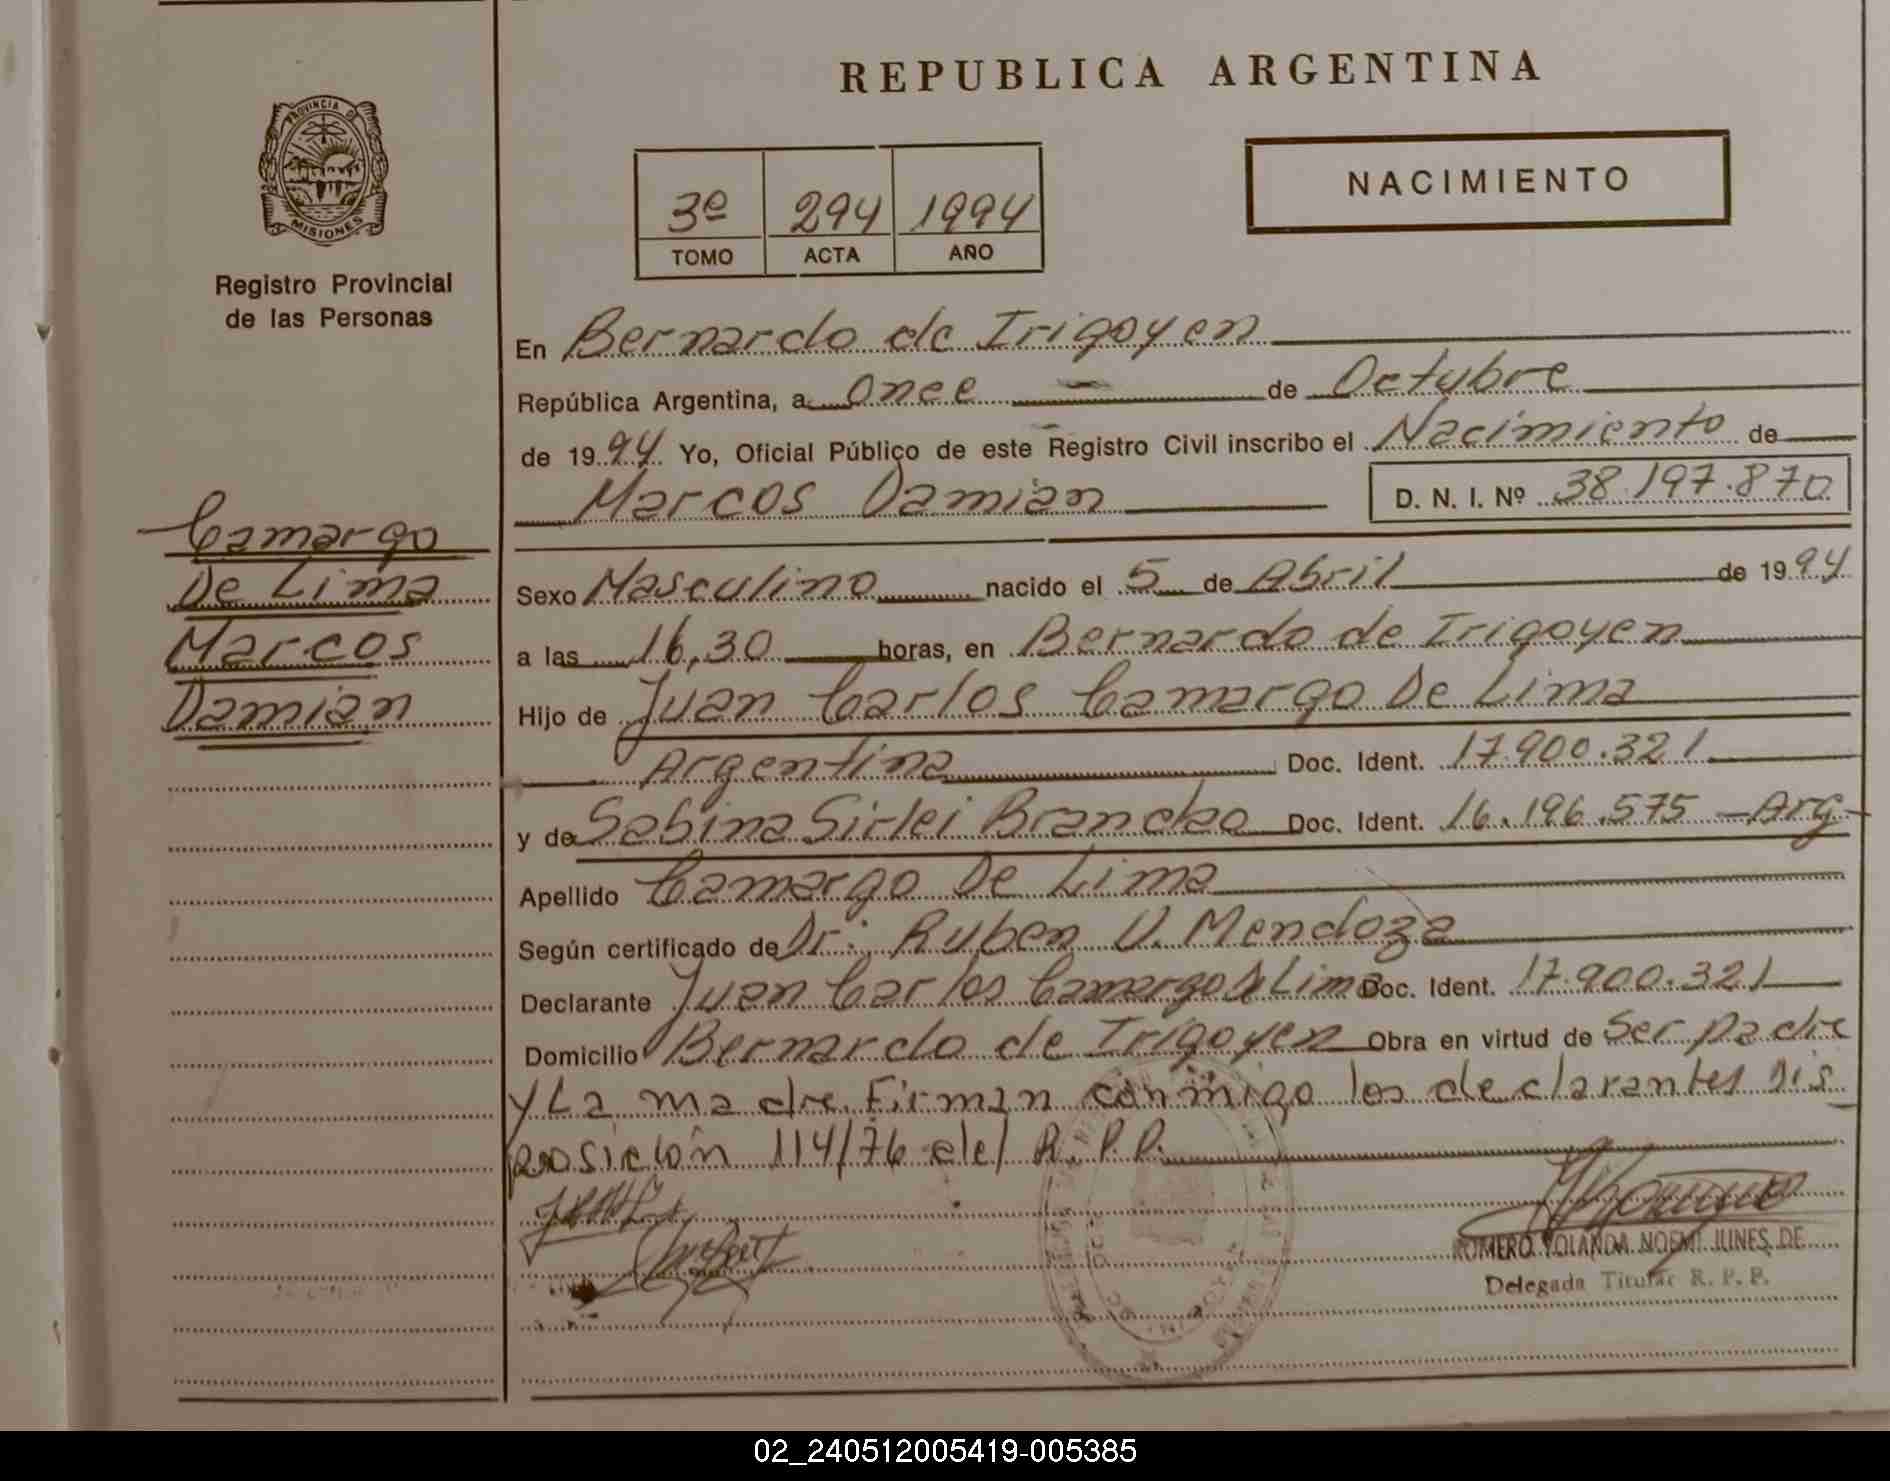 REPUBLICA ARGENTINA
PROVINCIA DE
MISIONES
Registro Provincial
de las Personas
3º 294 1994
TOMO ACTA AÑO
NACIMIENTO
En Bernardo de Irigoyen
República Argentina, a Once de Octubre
de 1994 Yo, Oficial Público de este Registro Civil inscribo el Nacimiento de
Marcos Damian D. N. I. Nº 38.197.870
Camargo
De Lima
Marcos
Damian
Sexo Masculino nacido el 5 de Abril de 1994
a las 16,30 horas, en Bernardo de Irigoyen
Hijo de Juan Carlos Camargo De Lima
Argentina Doc. Ident. 17.900.321
y de Sabina Sirlei Brancao Doc. Ident. 16.196.575 - Arg -
Apellido Camargo De Lima
Según certificado de Dr: Ruben V. Mendoza
Declarante Juan Carlos Camargo de Lima Doc. Ident. 17.900.321
Domicilio Bernardo de Irigoyen Obra en virtud de Ser padre
y La madre. Firman conmigo los declarantes Dis
posición 114/76 del R.P.P.
ROMERO YOLANDA NOEMI JUNES DE
Delegada Titular R. P. P.
02_240512005419-005385